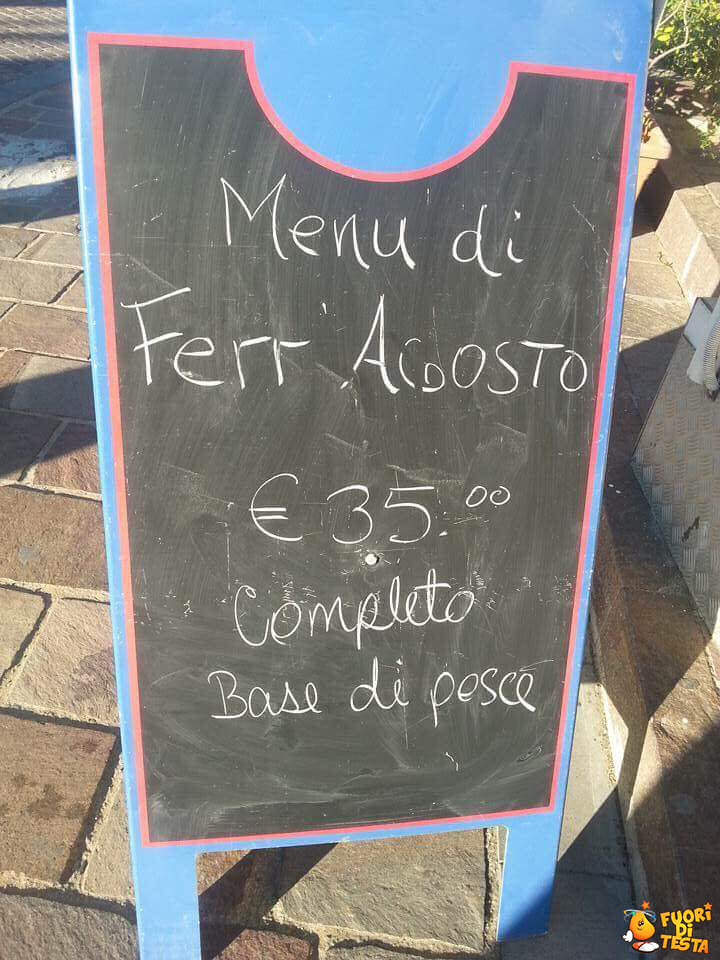 Menu di
Ferr'Agosto
€ 35.00
Completo
Base di pesce
FUORI
DI
TESTA